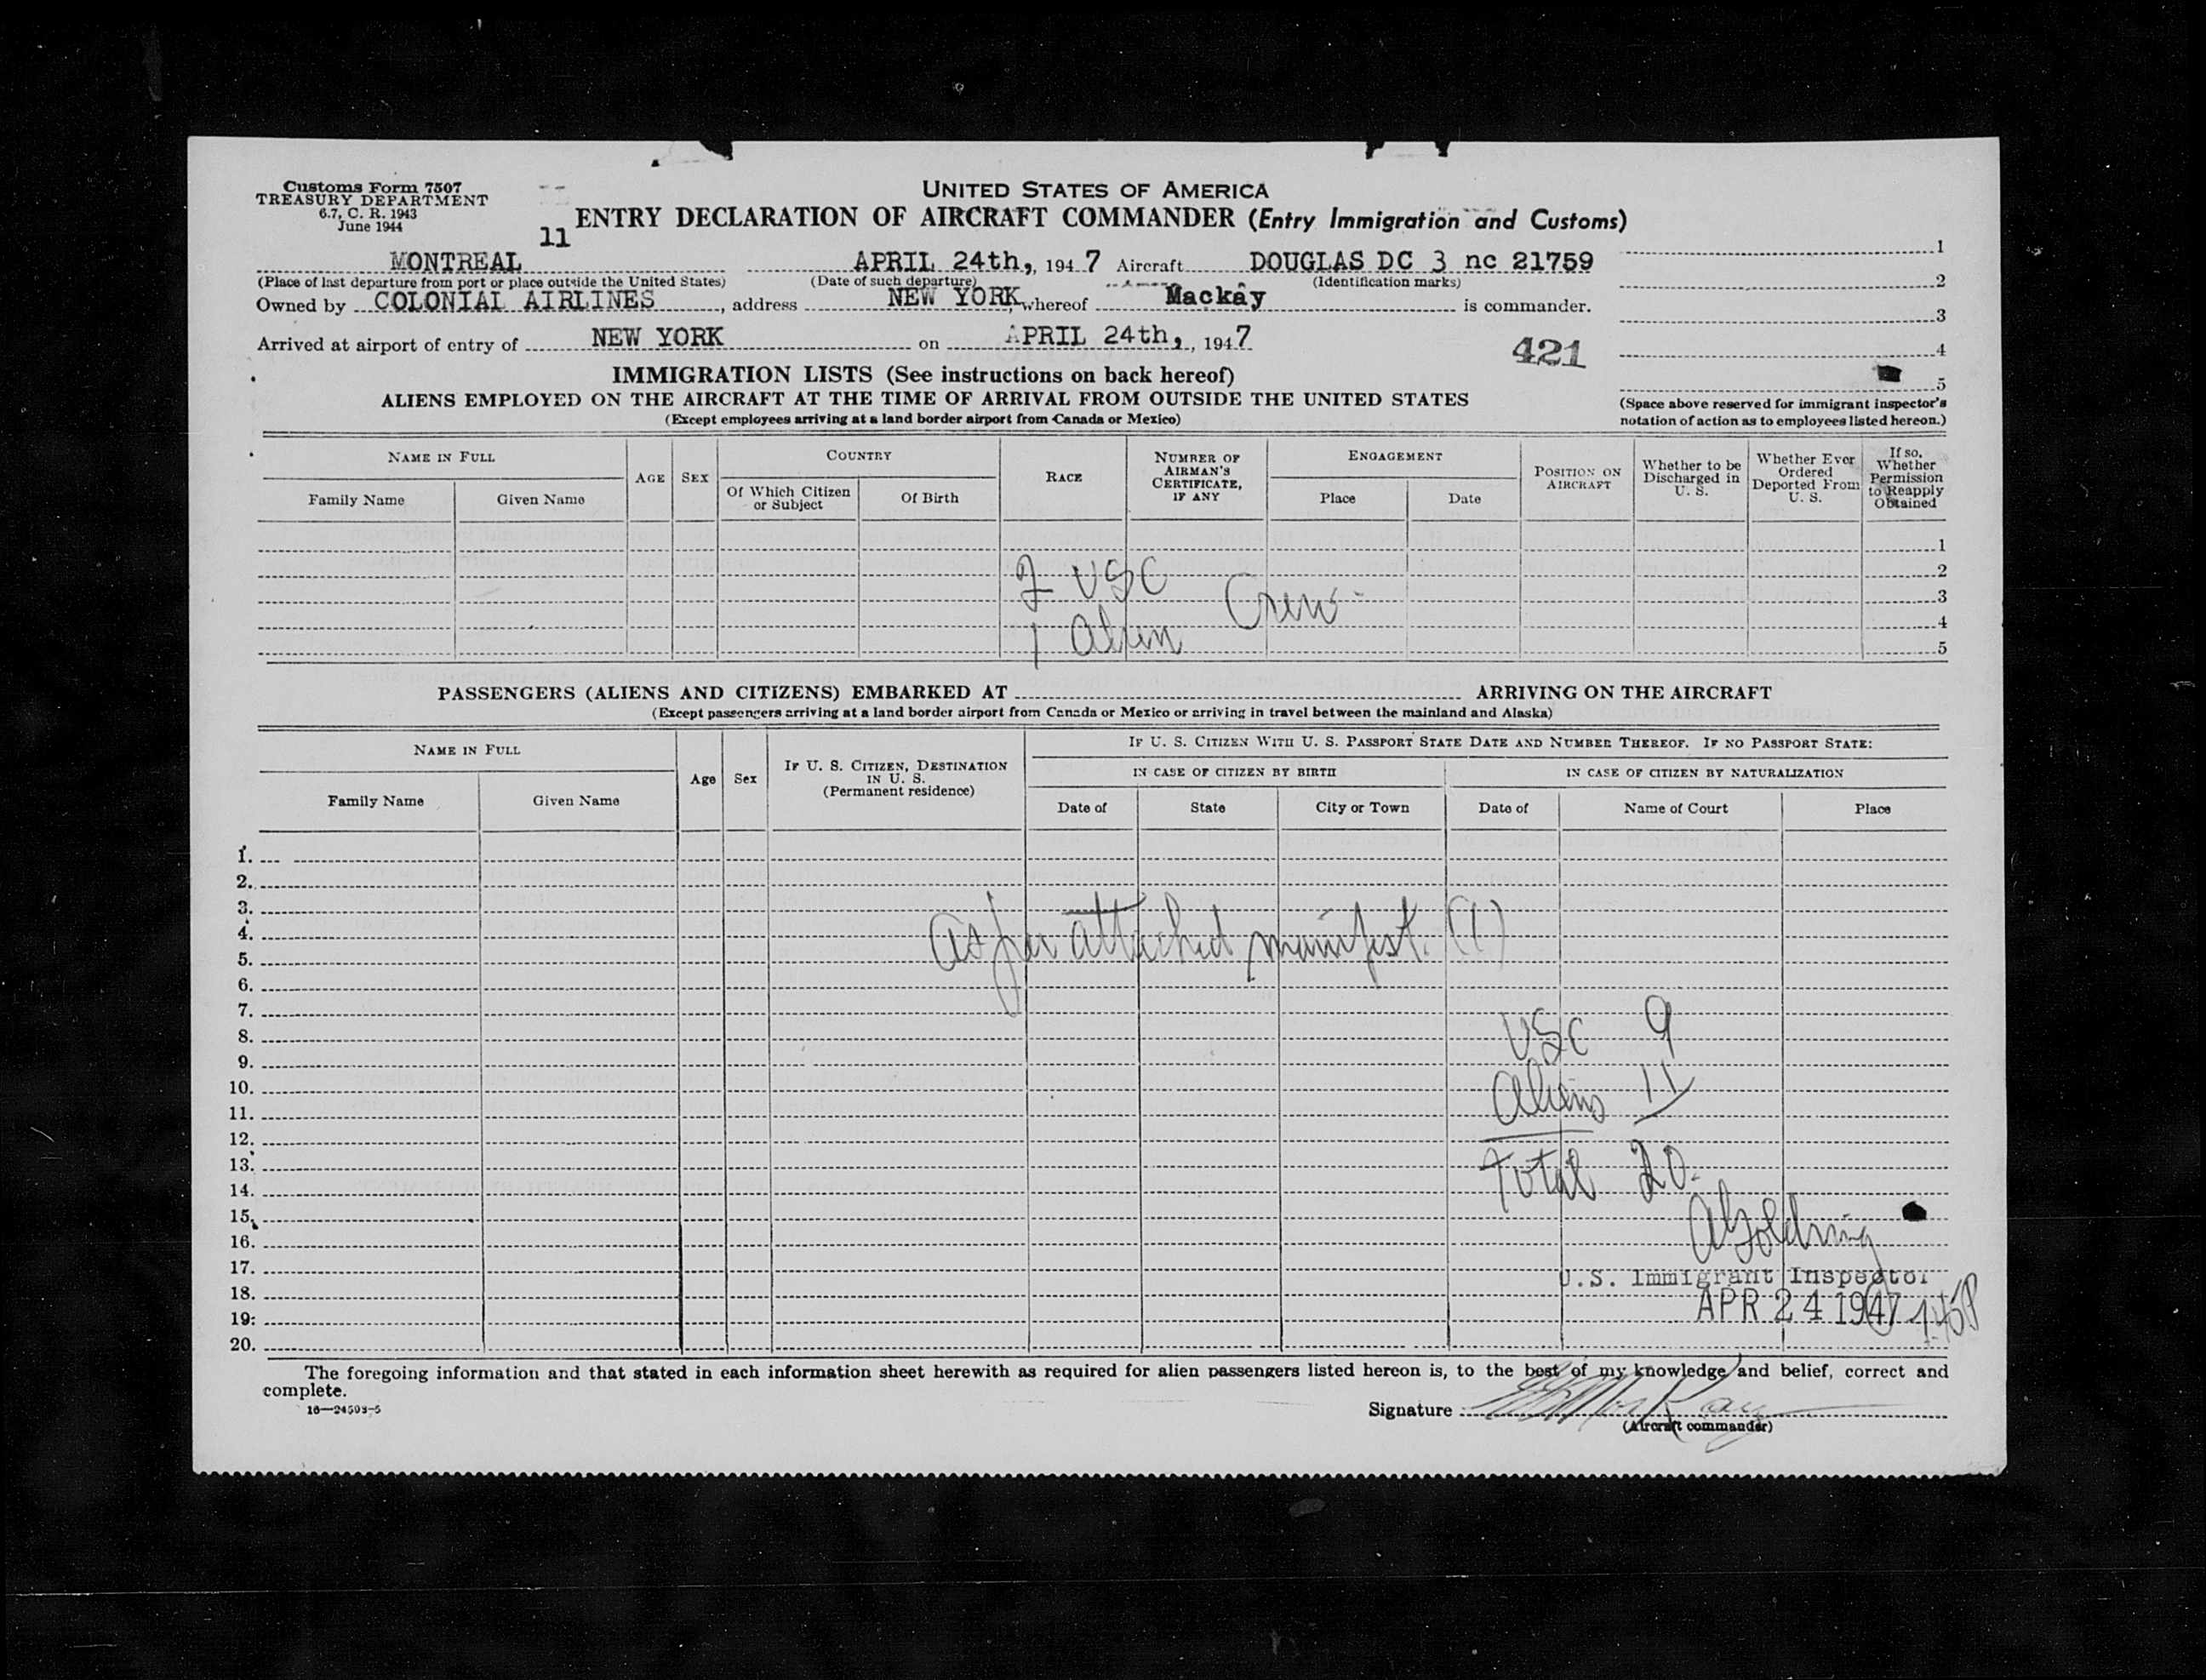 Customs Form 7507
TREASURY DEPARTMENT
6.7, C. R. 1943
June 1944
UNITED STATES OF AMERICA
ENTRY DECLARATION OF AIRCRAFT COMMANDER (Entry Immigration and Customs)
11
MONTREAL APRIL 24th, 1947 Aircraft DOUGLAS DC 3 nc 21759
(Place of last departure from port or place outside the United States) (Date of such departure) (Identification marks)
Owned by COLONIAL AIRLINES, address NEW YORK, whereof Mackay is commander.
Arrived at airport of entry of NEW YORK on APRIL 24th, 1947
421
1
2
3
4
5
(Space above reserved for immigrant inspector's
notation of action as to employees listed hereon.)
IMMIGRATION LISTS (See instructions on back hereof)
ALIENS EMPLOYED ON THE AIRCRAFT AT THE TIME OF ARRIVAL FROM OUTSIDE THE UNITED STATES
(Except employees arriving at a land border airport from Canada or Mexico)
NAME IN FULL
Family Name Given Name
AGE
SEX
COUNTRY
Of Which Citizen or Subject Of Birth
RACE
NUMBER OF AIRMAN'S CERTIFICATE, IF ANY
ENGAGEMENT
Place Date
POSITION ON AIRCRAFT
Whether to be Discharged in U. S.
Whether Ever Ordered Deported From U. S.
If so, Whether Permission to Reapply Obtained
1
2
3
4
5
2 USC
Crew
1 Alien
PASSENGERS (ALIENS AND CITIZENS) EMBARKED AT ARRIVING ON THE AIRCRAFT
(Except passengers arriving at a land border airport from Canada or Mexico or arriving in travel between the mainland and Alaska)
NAME IN FULL
Family Name Given Name
Age
Sex
IF U. S. CITIZEN, DESTINATION IN U. S. (Permanent residence)
IF U. S. CITIZEN WITH U. S. PASSPORT STATE DATE AND NUMBER THEREOF. IF NO PASSPORT STATE:
IN CASE OF CITIZEN BY BIRTH IN CASE OF CITIZEN BY NATURALIZATION
Date of State City or Town Date of Name of Court Place
1.
2.
3.
4.
5.
6.
7.
8.
9.
10.
11.
12.
13.
14.
15.
16.
17.
18.
19.
20.
As per attached manifest. (1)
USC 9
Aliens 11
Total 20.
A Goldring
U.S. Immigrant Inspector
APR 24 1947 1.45P
The foregoing information and that stated in each information sheet herewith as required for alien passengers listed hereon is, to the best of my knowledge and belief, correct and
complete.
16—24503-5
Signature
(Aircraft commander)